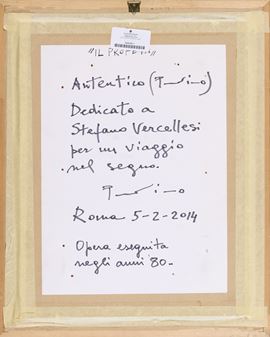 "IL PROFETA"
Autentico (Tursino)
Dedicato a
Stefano Vercellesi
per un viaggio
nel segno.
Roma 5-2-2014
Opera eseguita
negli anni '80-